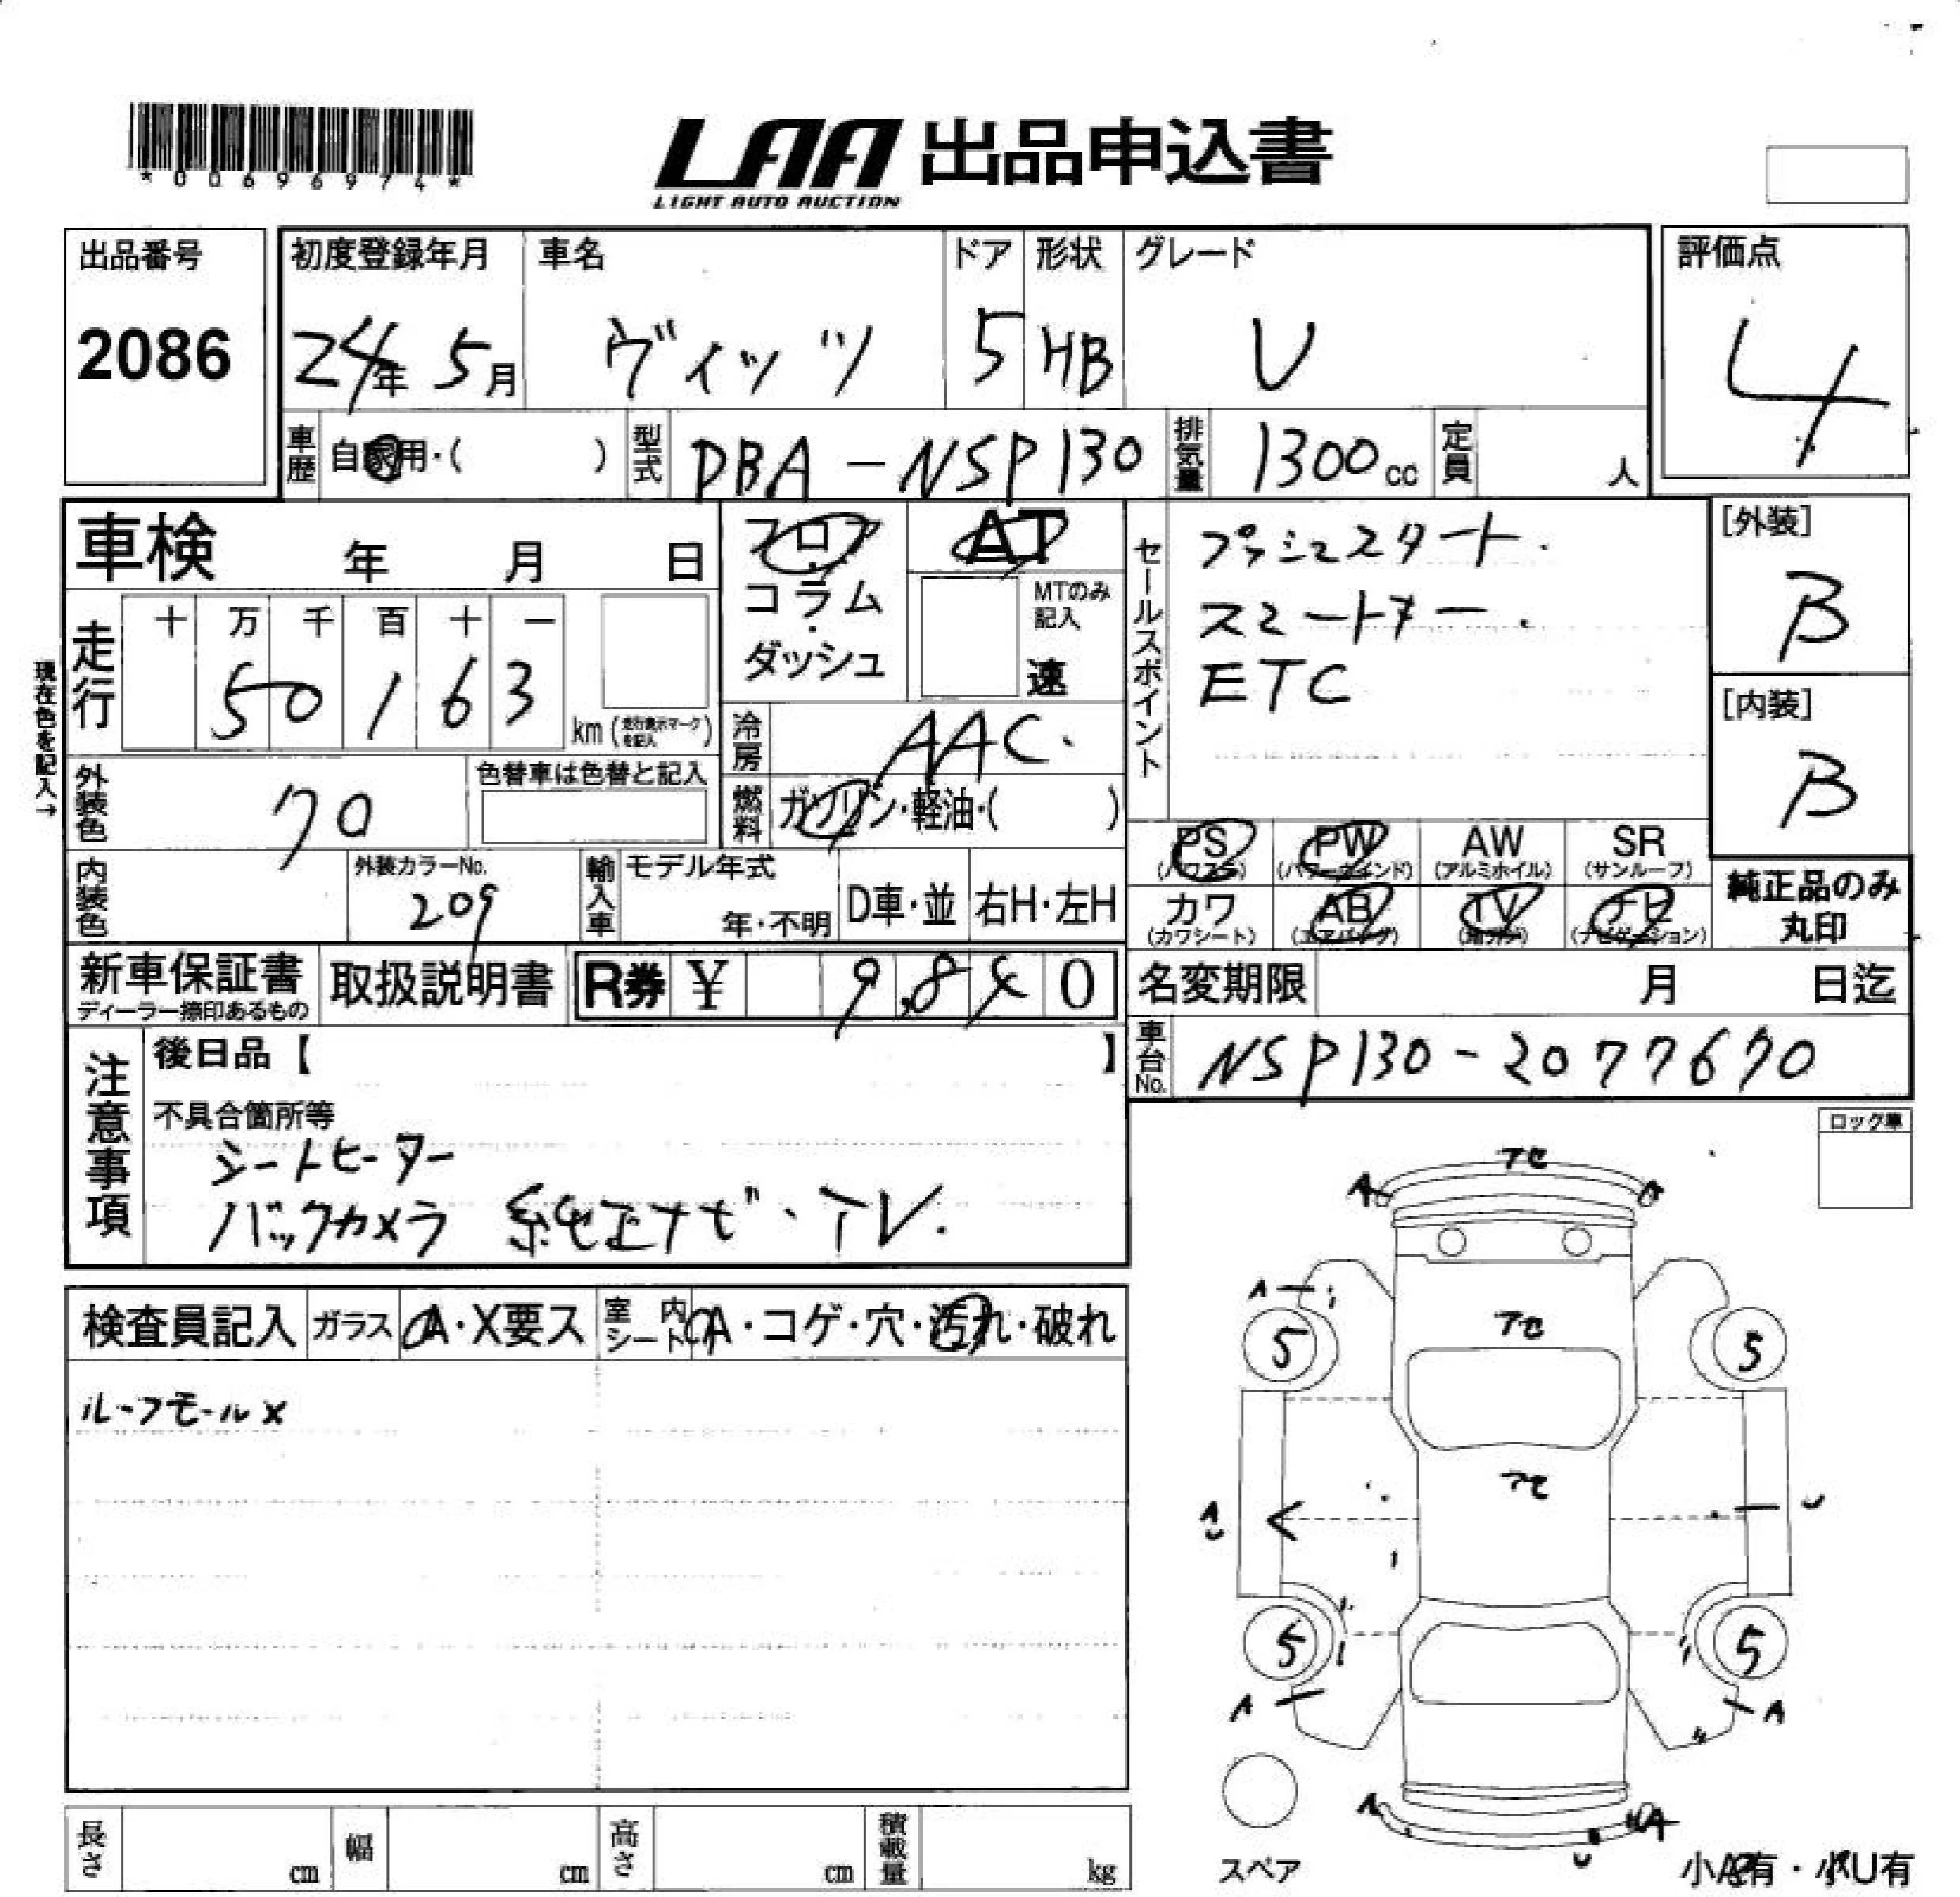 *00696974*
LAA 出品申込書
LIGHT AUTO AUCTION
出品番号
2086
初度登録年月
24年 5月
車名
ヴィッツ
ドア
5
形状
HB
グレード
U
評価点
4
車歴
自家用・( )
型式
DBA-NSP130
排気量
1300cc
定員
人
車検 年 月 日
フロア・コラム・ダッシュ
AT
MTのみ記入
速
セールスポイント
プッシュスタート.
スマートキー.
ETC
[外装]
B
[内装]
B
現在色を記入→
走行
十 万 千 百 十 一
5 0 1 6 3
km (走行表示マークを記入)
冷房
AAC.
燃料
ガソリン・軽油・( )
外装色
クロ
色替車は色替と記入
内装色
外装カラーNo.
209
輸入車
モデル年式
年・不明
D車・並
右H・左H
PS
(パワステ)
PW
(パワーウインド)
AW
(アルミホイル)
SR
(サンルーフ)
カワ
(カワシート)
AB
(エアバッグ)
TV
ナビ
(ナビゲーション)
純正品のみ
丸印
新車保証書
ディーラー捺印あるもの
取扱説明書
R券 ¥ 9,840
名変期限 月 日迄
車台No.
NSP130-2077670
注意事項
後日品【 】
不具合箇所等
シートヒーター
バックカメラ 純正ナビ・TV.
ロック車
検査員記入
ガラス
A・X要ス
室内シート
A・コゲ・穴・汚れ・破れ
ルーフモールX
アセ
A
A
アセ
5
5
アセ
A
U
U
5
5
A
A
A
A
U
スペア
小A有・小U有
長さ cm
幅 cm
高さ cm
積載量 kg